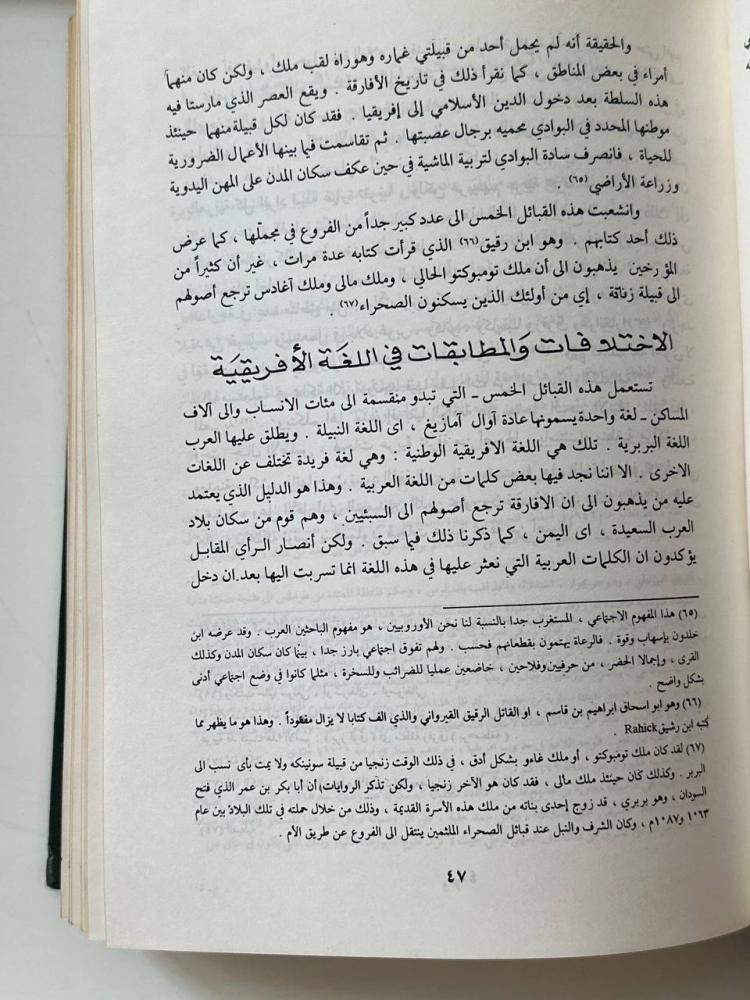 والحقيقة أنه لم يحمل أحد من قبيلتي غماره وهوراه لقب ملك ، ولكن كان منهما
أمراء في بعض المناطق ، كما نقرأ ذلك في تاريخ الأفارقة . ويقع العصر الذي مارستا فيه
هذه السلطة بعد دخول الدين الأسلامي إلى إفريقيا . فقد كان لكل قبيلة منهما حينئذ
موطنها المحدد في البوادي محميه برجال عصبتها . ثم تقاسمت فيما بينها الأعمال الضرورية
للحياة ، فانصرف سادة البوادي لتربية الماشية في حين عكف سكان المدن على المهن اليدوية
وزراعة الأراضي (٦٥) .
وانشعبت هذه القبائل الخمس الى عدد كبير جداً من الفروع في مجملها ، كما عرض
ذلك أحد كتابهم . وهو ابن رقيق (٦٦) الذي قرأت كتابه عدة مرات ، غير أن كثيراً من
المؤرخين يذهبون الى أن ملك تومبوكتو الحالي ، وملك مالى وملك آغادس ترجع أصولهم
الى قبيلة زناقة ، إي من أولئك الذين يسكنون الصحراء (٦٧) .
الاختلافات والمطابقات في اللغة الأفريقية
تستعمل هذه القبائل الخمس ـ التي تبدو منقسمة الى مئات الانساب والى آلاف
المساكن ـ لغة واحدة يسمونها عادة آوال آمازيغ ، اى اللغة النبيلة . ويطلق عليها العرب
اللغة البربرية . تلك هي اللغة الافريقية الوطنية : وهي لغة فريدة تختلف عن اللغات
الاخرى . الا اننا نجد فيها بعض كلمات من اللغة العربية . وهذا هو الدليل الذي يعتمد
عليه من يذهبون الى ان الافارقة ترجع أصولهم الى السبئيين ، وهم قوم من سكان بلاد
العرب السعيدة ، اى اليمن ، كما ذكرنا ذلك فيما سبق . ولكن أنصار الرأي المقابل
يؤكدون ان الكلمات العربية التي نعثر عليها في هذه اللغة انما تسربت اليها بعد ان دخل
(٦٥) هذا المفهوم الاجتماعي ، المستغرب جدا بالنسبة لنا نحن الأوروبيين ، هو مفهوم الباحثين العرب . وقد عرضه ابن
خلدون بإسهاب وقوة . فالرعاة يهتمون بقطعانهم فحسب . ولهم تفوق اجتماعي بارز جدا ، بينما كان سكان المدن وكذلك
القرى ، وإجمالا الحضر ، من حرفيين وفلاحين ، خاضعين عمليا للضرائب وللسخرة ، مثلما كانوا في وضع اجتماعي أدنى
بشكل واضح .
(٦٦) وهو ابو اسحاق ابراهيم بن قاسم ، او القاتل الرقيق القيرواني والذي الف كتابا لا يزال مفقوداً . وهذا هو ما يظهر مما
كتبه ابن رشيق Rahick .
(٦٧) لقد كان ملك تومبوكتو ، أو ملك غاءو بشكل أدق ، في ذلك الوقت زنجيا من قبيلة سونينكه ولا يمت بأى نسب الى
البربر . وكذلك كان حينئذ ملك مالى ، فقد كان هو الآخر زنجيا ، ولكن تذكر الروايات) أن أبا بكر بن عمر الذي فتح
السودان ، وهو بربري ، قد زوج إحدى بناته من ملك هذه الأسرة القديمة ، وذلك من خلال حملته في تلك البلاد بين عام
١٠٦٣ و ١٠٨٧م ، وكان الشرف والنبل عند قبائل الصحراء الملثمين ينتقل الى الفروع عن طريق الأم .
٤٧